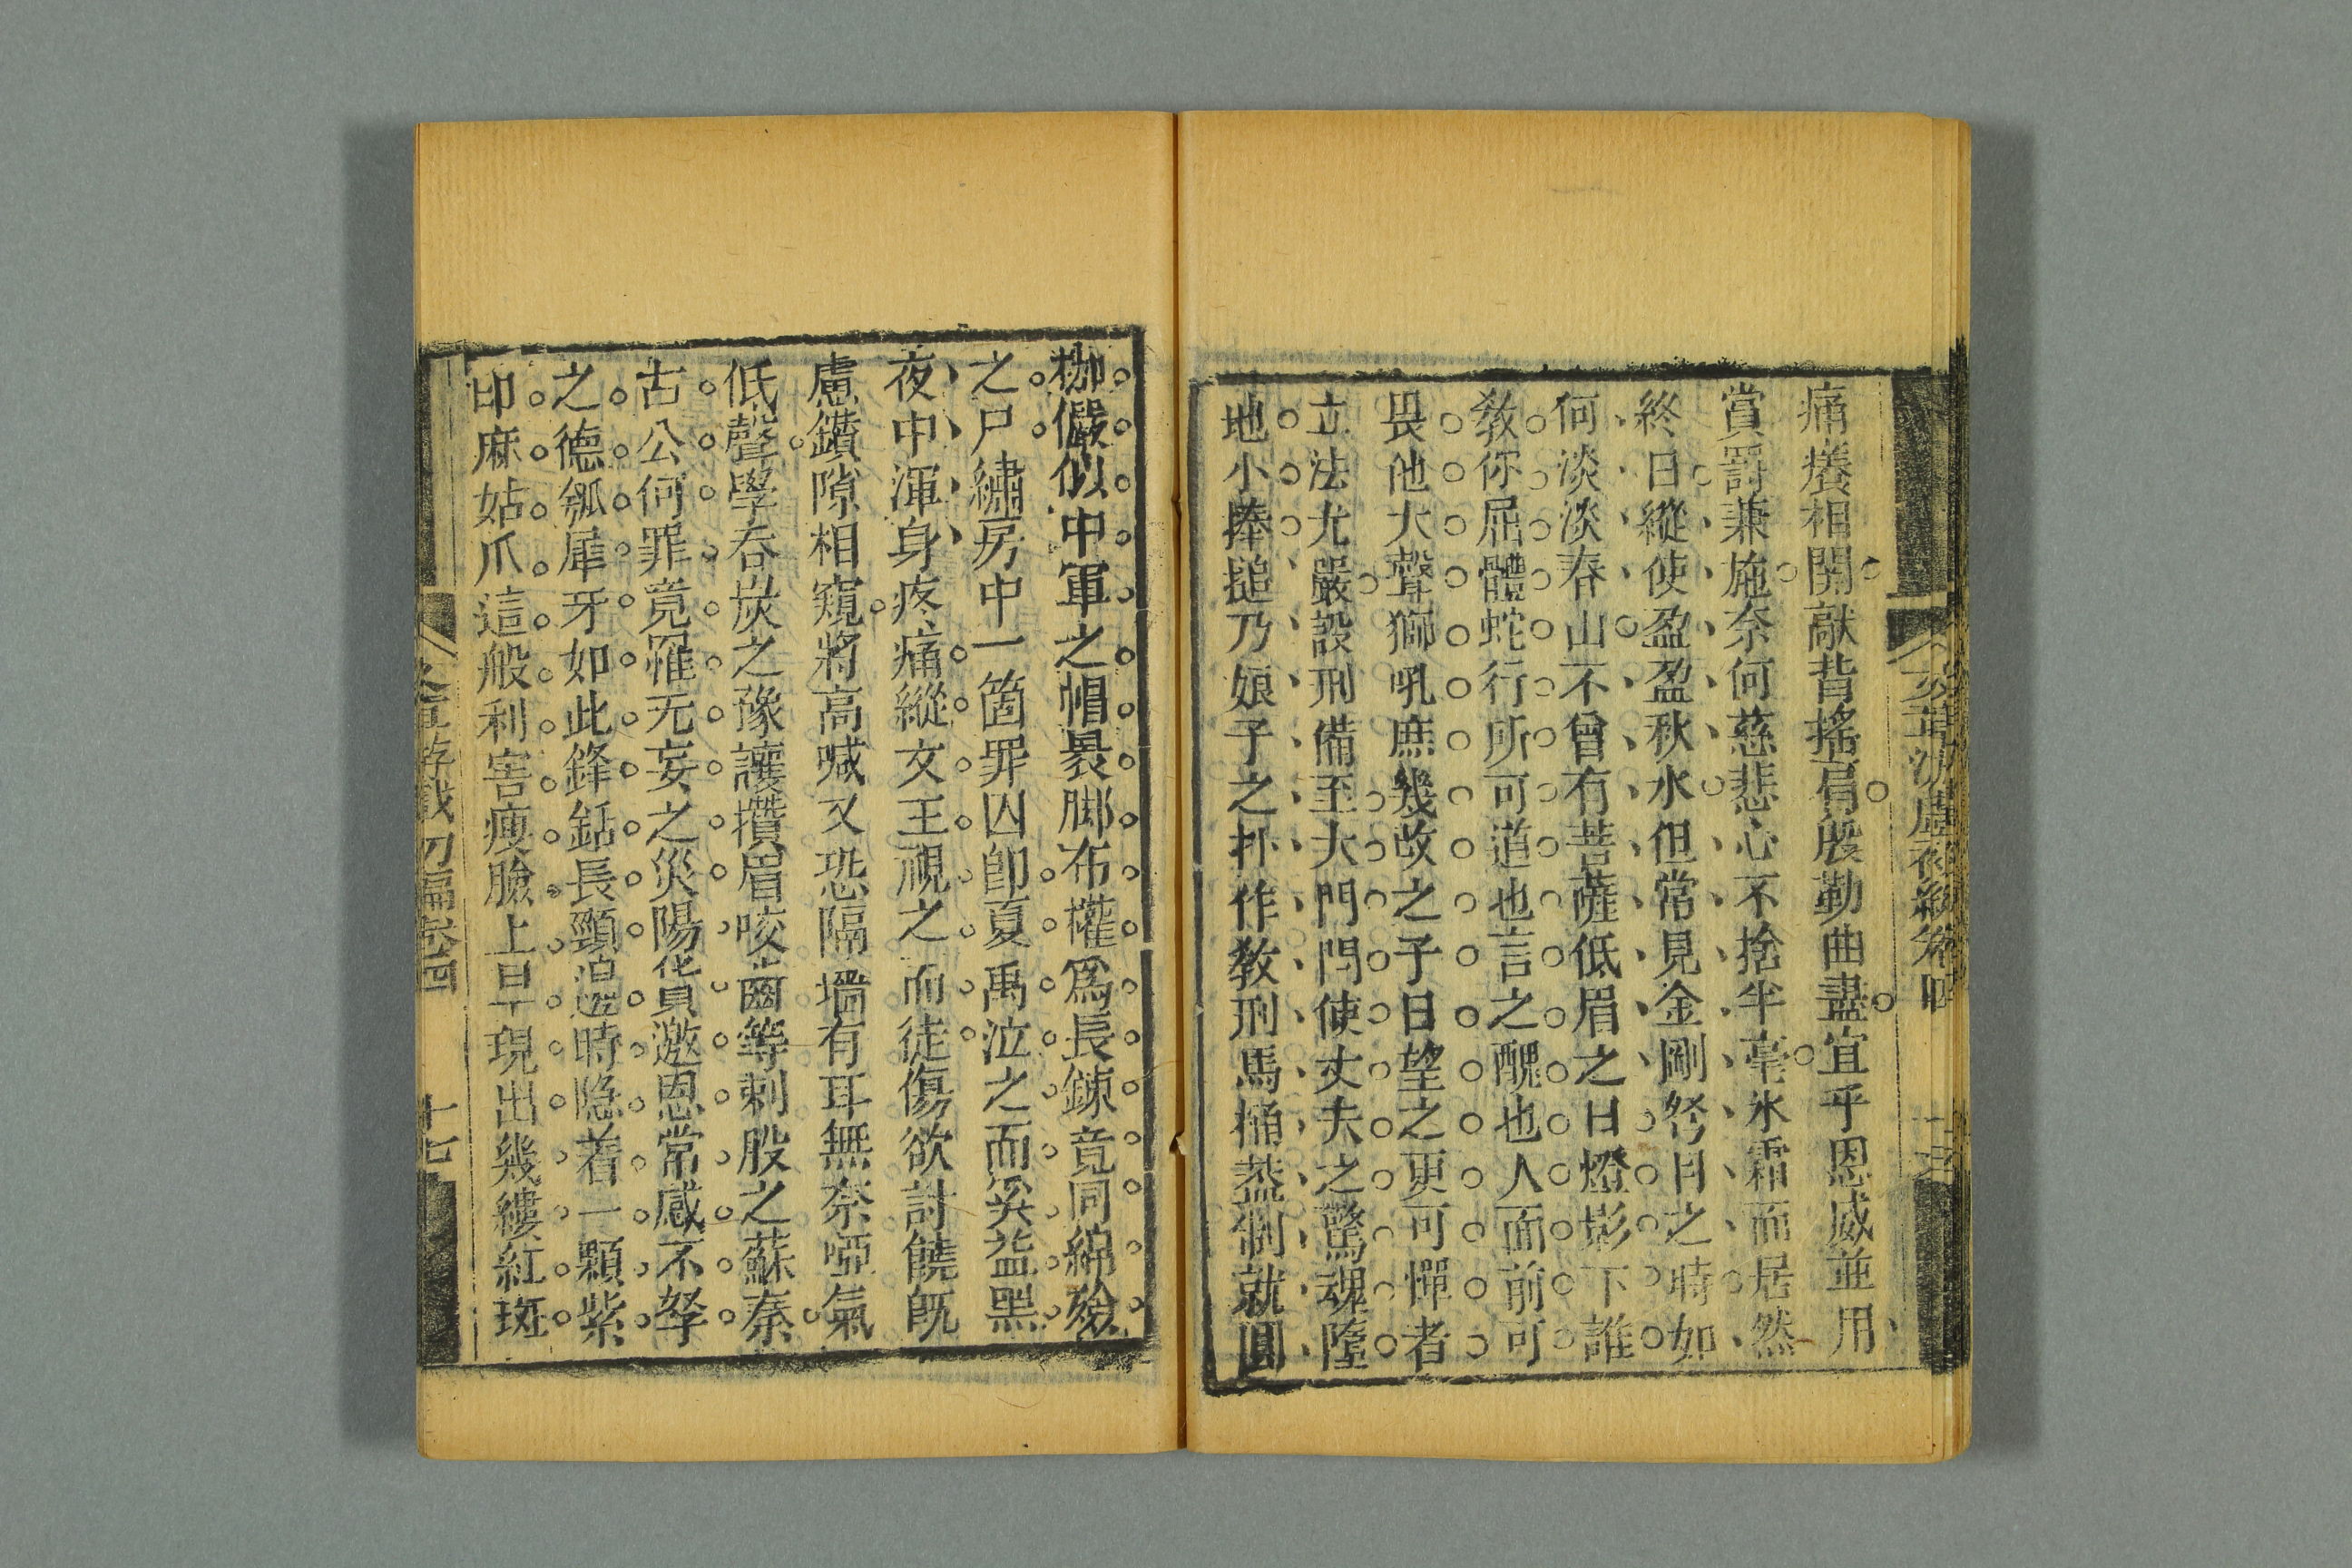 痛癢相關敲背搖肩殷勤曲盡宜乎恩威並用
賞罰兼施奈何慈悲心不捨半毫氷霜而居然
終日縱使盈盈秋水但常見金剛努目之時如
何淡淡春山不曾有菩薩低眉之日燈影下誰
敎你屈體蛇行所可道也言之醜也人面前可
畏他大聲獅吼庶幾改之予日望之更可憚者
立法尤嚴設刑備至大門閂使丈夫之驚魂墮
地小捧搥乃娘子之扑作敎刑馬桶葢制就圓
枷儼似中軍之帽褁脚布權爲長鍊竟同綿殮
之尸繡房中一箇罪囚卽夏禹泣之而奚益黑
夜中渾身疼痛縱文王視之而徒傷欲討饒旣
慮鑽隙相窺將高喊又恐隔墻有耳無奈啞氣
低聲學吞炭之豫讓攢眉咬齒等刺股之蘇秦
古公何罪竟罹无妄之災陽貨邀恩常感不孥
之德瓠犀牙如此鋒銛長頸邊時隐着一顆紫
印麻姑爪這般利害瘦臉上早現出幾縷紅斑
游戲刀編卷四
十七